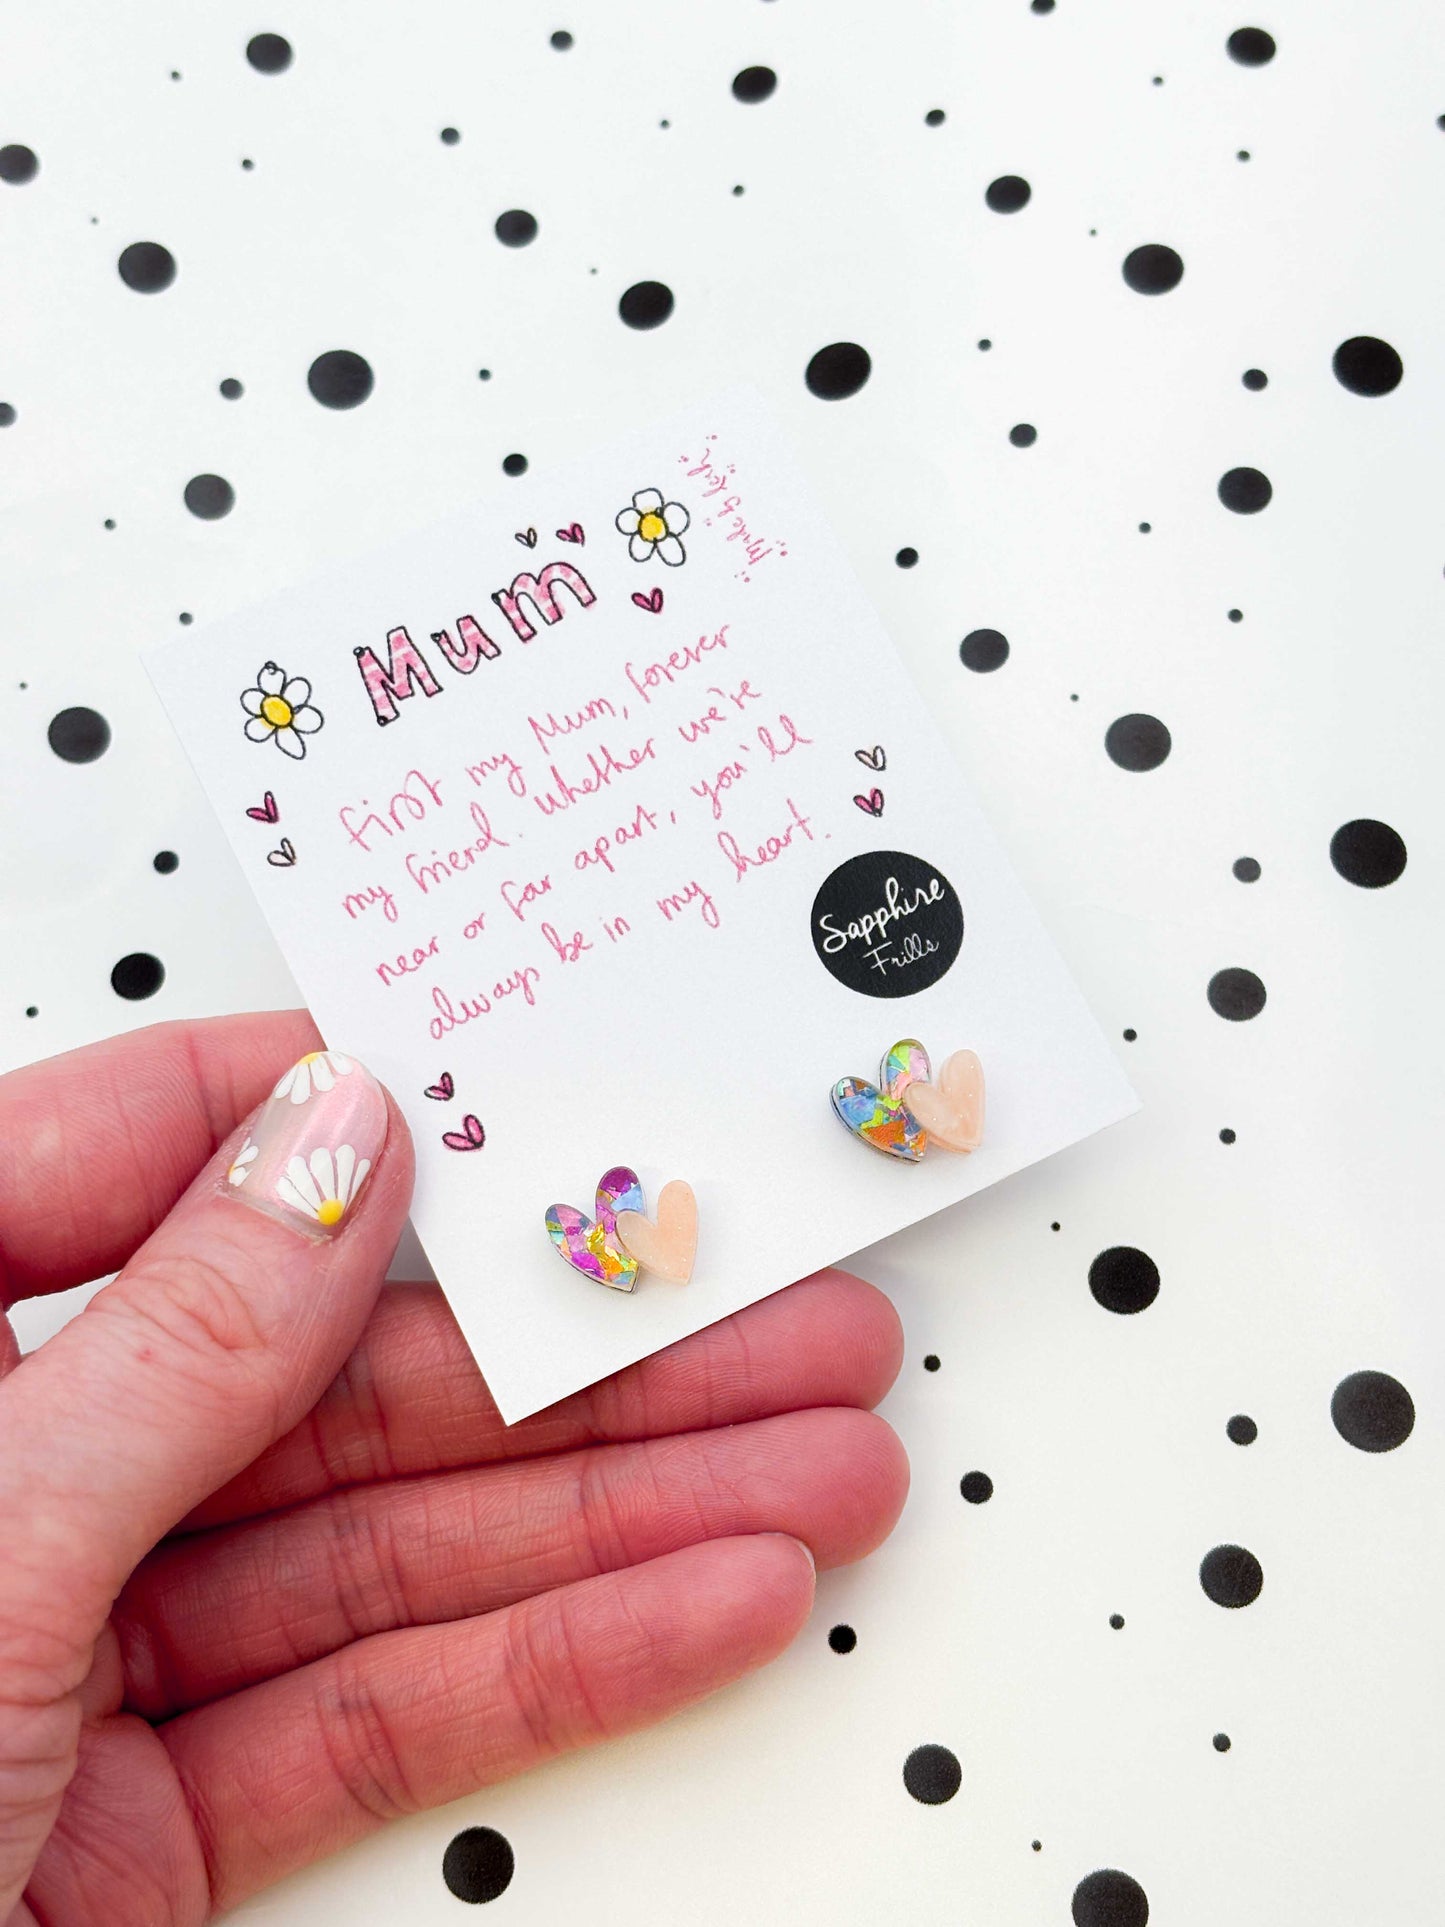 Mum
first my Mum, forever
my friend. Whether we're
near or far apart, you'll
always be in my heart.
Sapphire
Frills